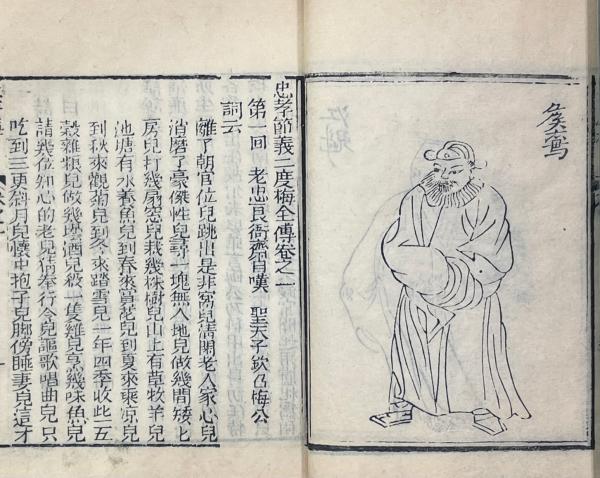 侯鸞
忠孝節義二度梅全傳卷之一
第一回　老忠良衙齋自嘆　聖天子欽召梅公
詞云
離了朝官位兒跳出是非窩兒清閑老人家心兒
消磨了豪傑性兒尋一塊無人地兒做幾間矮
房兒打幾扇窓兒栽幾株樹兒山上有草牧羊兒
池塘有水養魚兒到春來賞花兒到夏來乘凉兒
到秋來觀菊兒到冬來踏雪兒一年四季收些五
穀雜粮兒做幾壜酒兒殺一隻雞兒烹幾味魚兒
請幾位知心的老兒猜拳行令兒謳歌唱曲兒只
吃到三更斜月兒懷中抱子兒脚傍睡妻兒這才